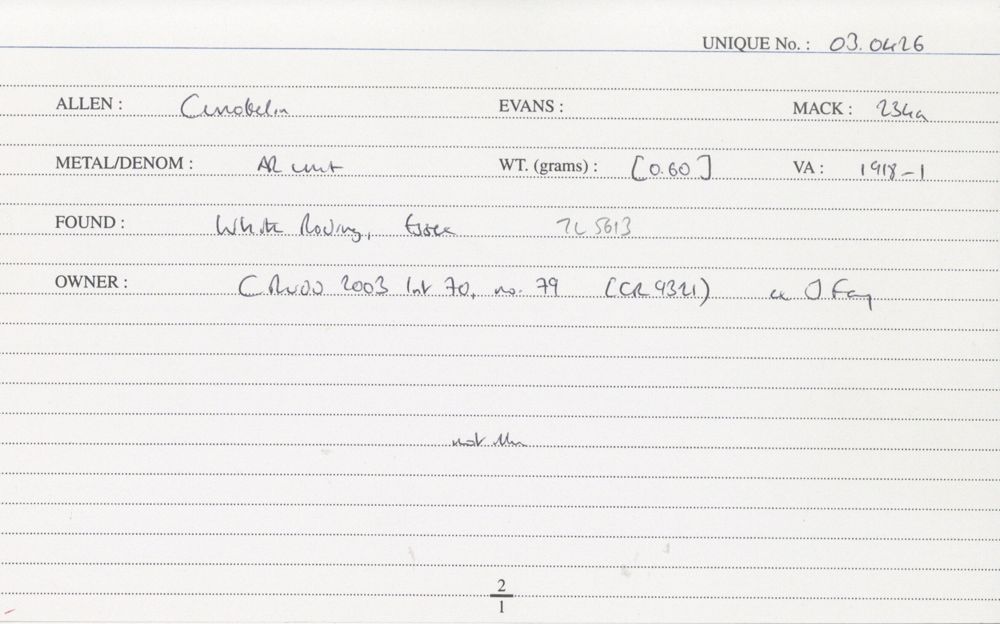 UNIQUE No. : 03.0426
ALLEN : Cunobelin EVANS : MACK : 234a
METAL/DENOM : AR unit WT. (grams) : [0.60] VA : 1918-1
FOUND : White Roding, Essex TL 5613
OWNER : 2003 list 70, no. 79 (CR 9321) ex
not
2
1